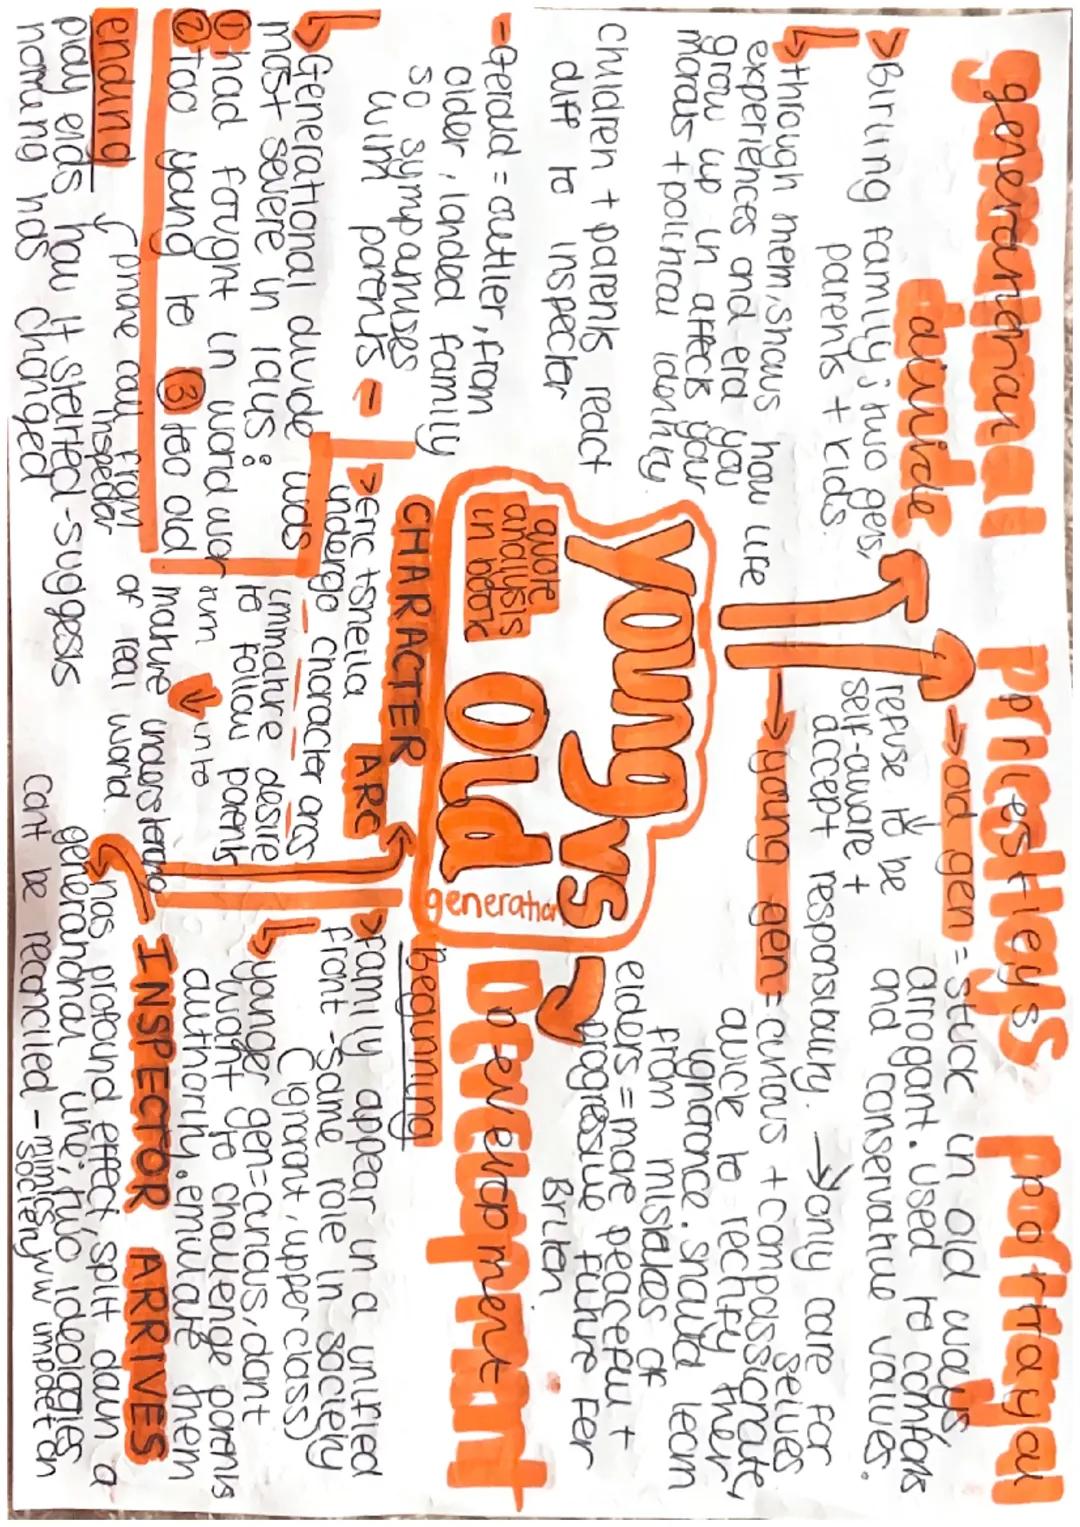 generational
divide
> Birling family; two gens,
parents + kids.
↳ through them, shows how life
experiences and era you
grow up in affects your
morals + political identity
children + parents react
diff to inspector
- Gerald = outlier, from
older, landed family
so sympathises
with parents -
↳ Generational divide was
most severe in 1940s:
① had fought in world war
② too young to ③ too old
ending
phone call from
inspector
play ends how it started - suggests
nothing has changed
young vs
Old
generation
quote
analysis
in book
Priestleys portrayal
→ old gen = stuck in old ways
arrogant. used to comforts
and conservative values.
refuse to be
self-aware +
accept responsibility. → only care for
selves
→ young gen = curious + compassionate,
quick to rectify their
ignorance. should learn
from mistakes of
elders = more peaceful +
progressive future for
Britain
CHARACTER ARC
> Eric + Sheila
undergo character arcs
immature desire
to follow parents
turn ↓ into
mature understand
of real world
Development
beginning
> family appear in a unified
front - same role in society
(ignorant, upper class)
↳ younger gen = curious, dont
want to challenge parents
authority, emulate them
INSPECTOR ARRIVES
↳ has profound effect, split down a
generational line; two ideologies
cant be reconciled - mimics ww impact on
society